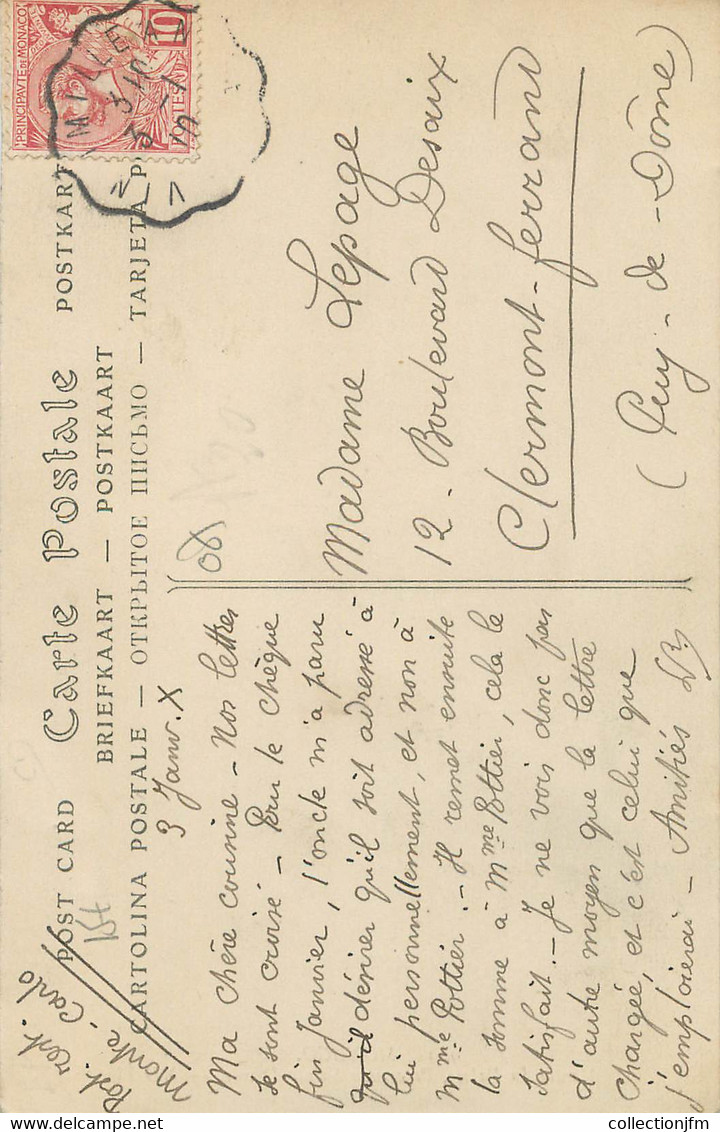 PRINCIPAUTÉ DE MONACO
10
CENTES
Carte Postale
POST CARD
POSTKART
BRIEFKAART — POSTKAART
CARTOLINA POSTALE — ОТКРЫТОЕ ПИСЬМО — TARJETA P
Monte-Carlo
3 Janv. X
Ma chère cousine – Nos lettres
se sont croisé – Pour le chèque
fin Janvier, l'oncle m'a paru
qu'il désirer qu'il soit adressé à
lui personnellement, et non à
Mme Pottier. – Il remet ensuite
la somme à Mme Pottier, cela le
satisfait. – Je ne vois donc pas
d'autre moyen que la lettre
chargée, et c'est celui que
j'emploierai – Amitiés
Madame Lepage
12 - Boulevard Desaix
Clermont-ferrand
(Puy - de - Dôme)
collectionjfm